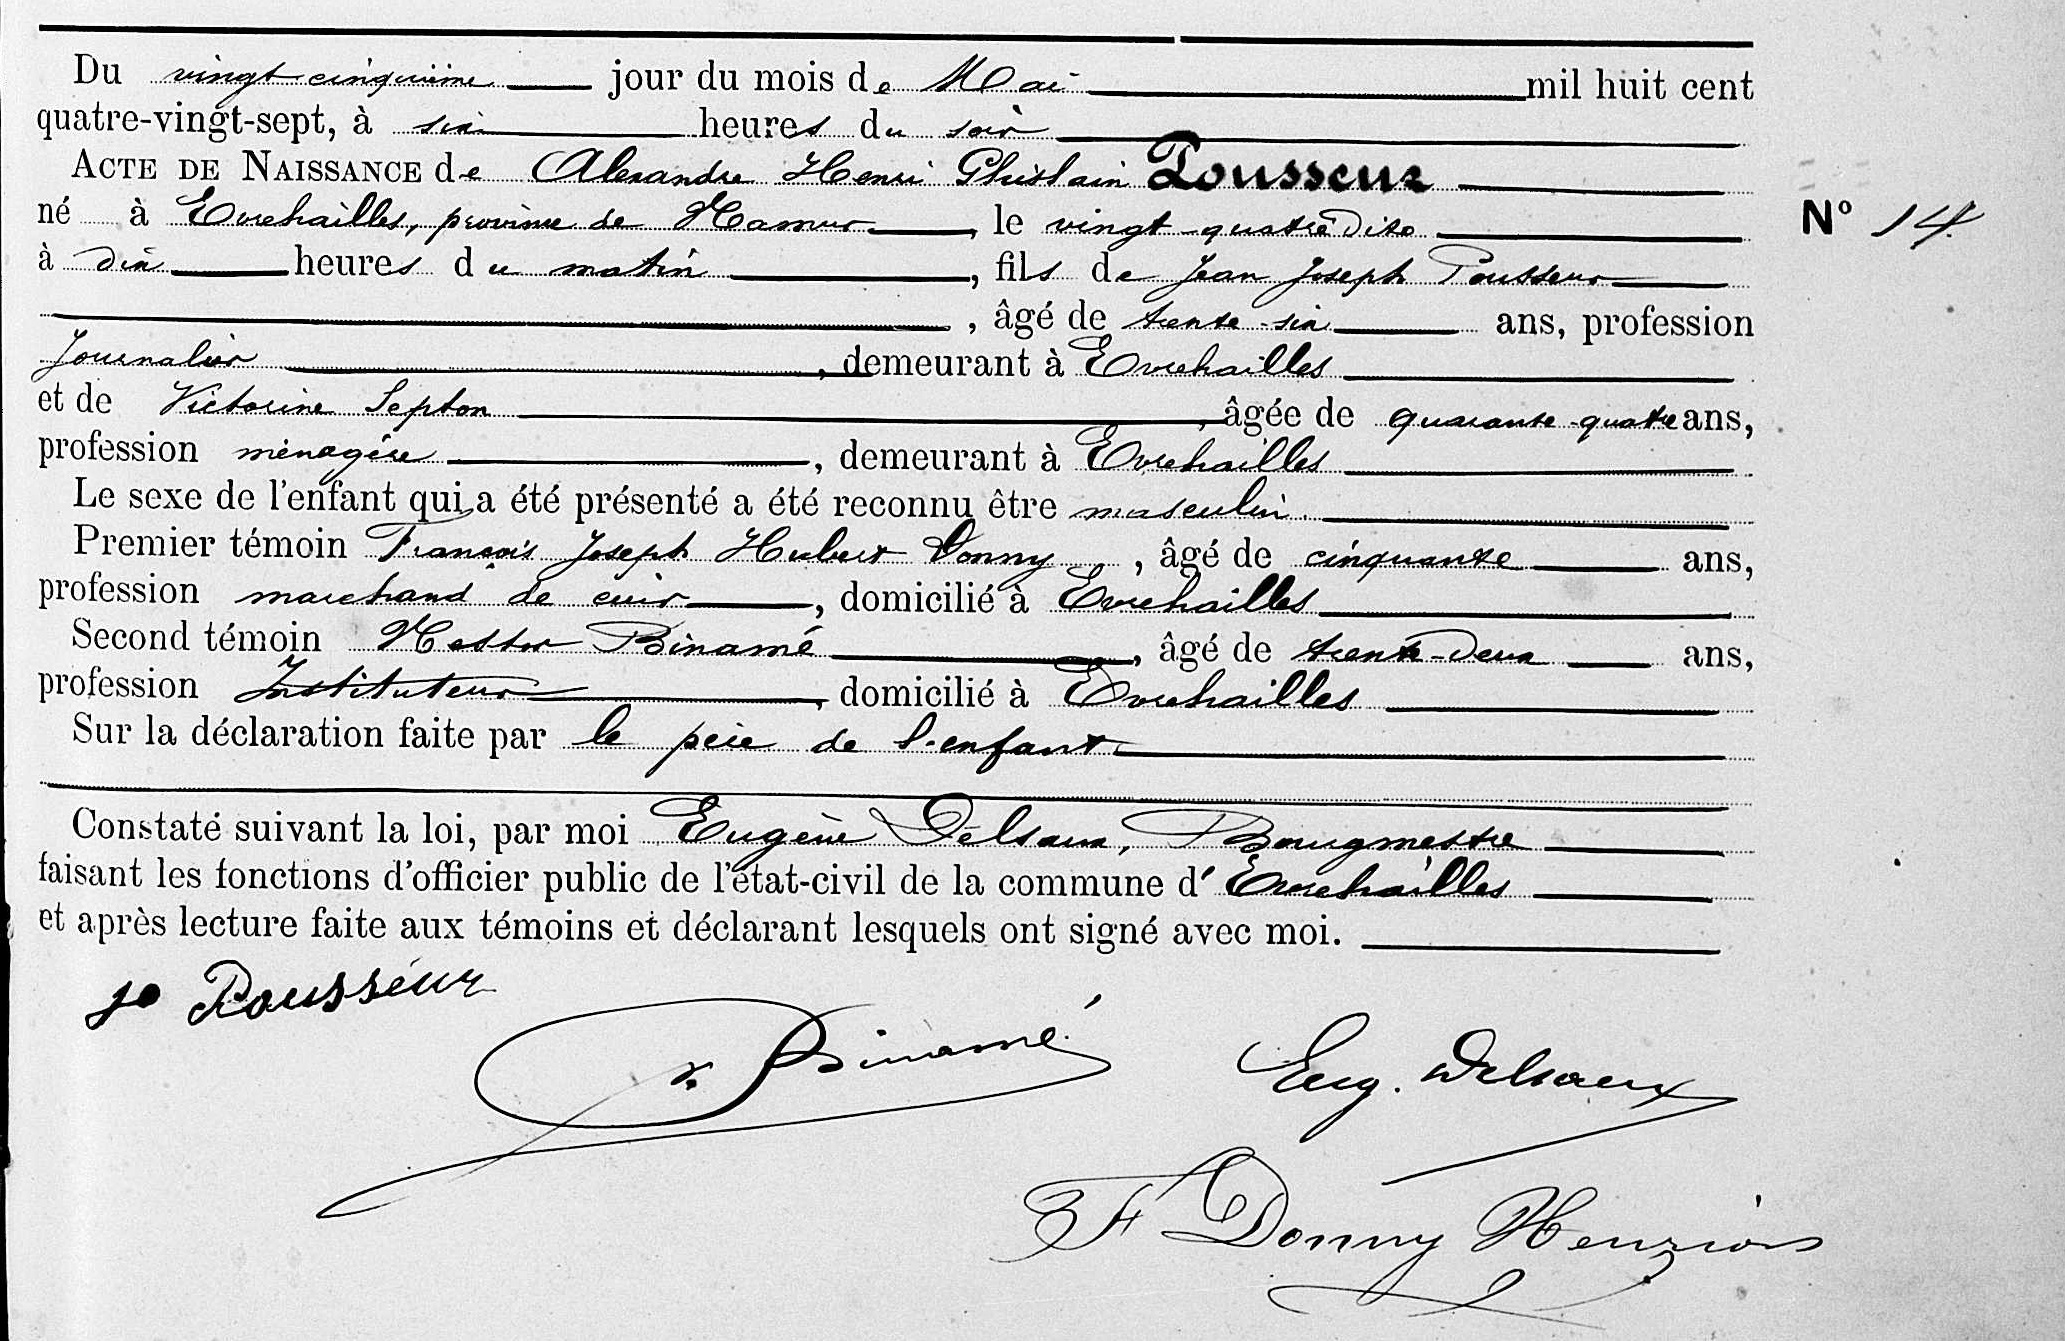 Du vingt cinquième jour du mois de Mai mil huit cent
quatre-vingt-sept, à six heures du soir
ACTE DE NAISSANCE de Alexandre Henri Ghislain Pousseur
né à Evrehailles, province de Namur, le vingt-quatre dito
N° 14
à dix heures du matin, fils de Jean Joseph Pousseur
, âgé de trente-six ans, profession
Journalier, demeurant à Evrehailles
et de Victorine Septon, âgée de quarante-quatre ans,
profession ménagère, demeurant à Evrehailles
Le sexe de l'enfant qui a été présenté a été reconnu être masculin.
Premier témoin François Joseph Hubert Donny, âgé de cinquante ans,
profession marchand de cuir, domicilié à Evrehailles
Second témoin Nestor Binamé, âgé de trente-deux ans,
profession Instituteur, domicilié à Evrehailles
Sur la déclaration faite par le père de l'enfant
Constaté suivant la loi, par moi Eugène Delsaux, Bourgmestre
faisant les fonctions d'officier public de l'état-civil de la commune d'Evrehailles
et après lecture faite aux témoins et déclarant lesquels ont signé avec moi.
Jo Pousseur
n. Binamé
Eug. Delsaux
F Donny